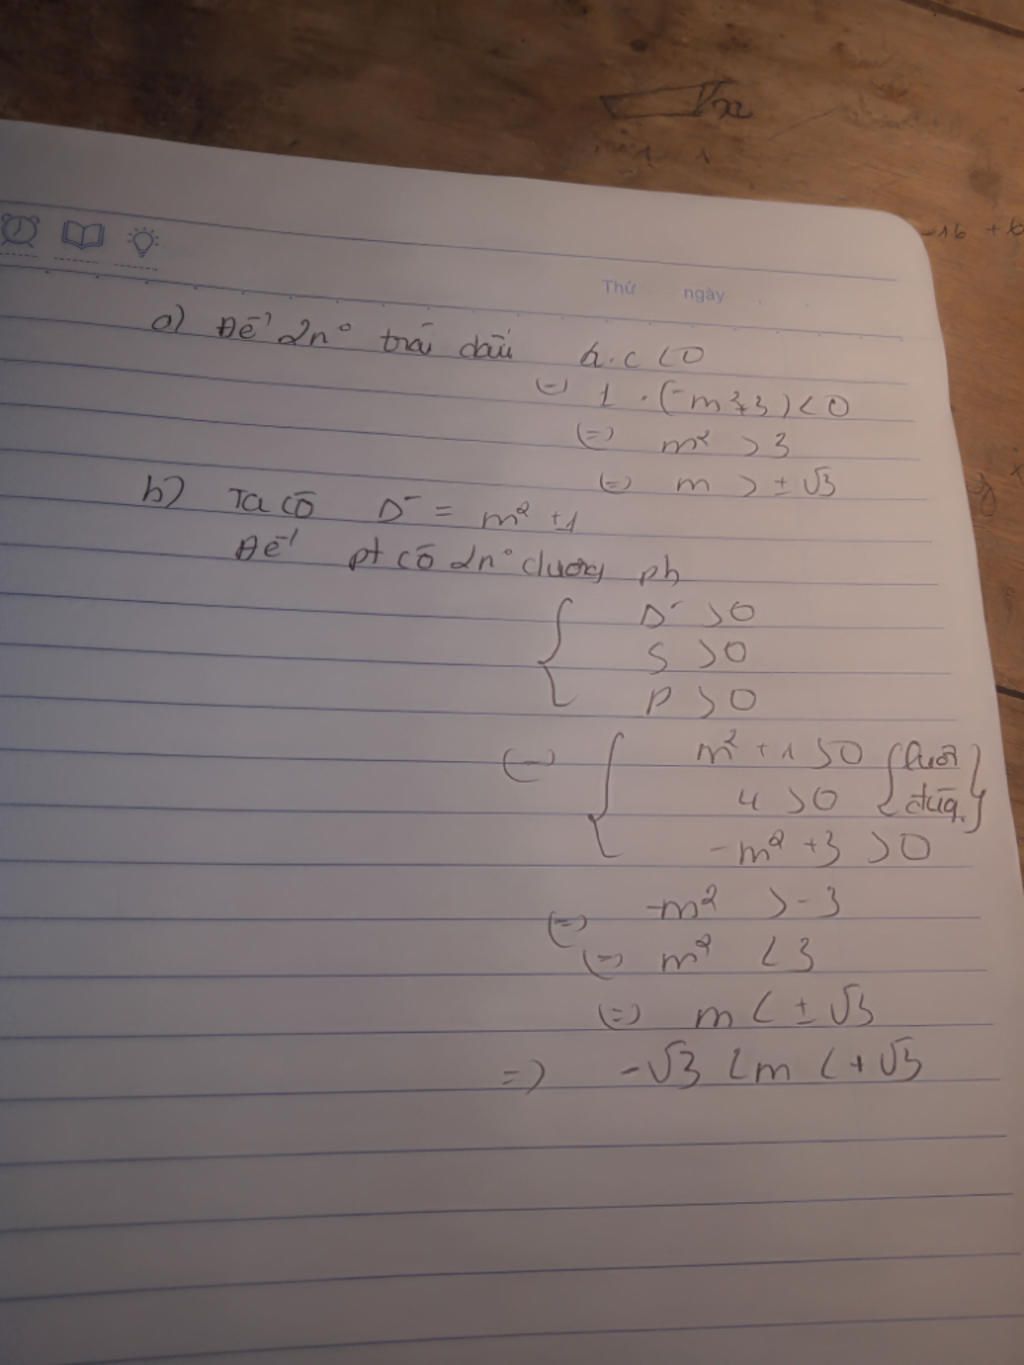 Thứ ngày
a) Để 2n° trái dấu a.c < 0
(=) 1 . (-m²+3) < 0
(=) m² > 3
(=) m > ± √3
b) Ta có Δ' = m² + 1
Để pt có 2n° dương ph
Δ' > 0
S > 0
P > 0
(=) m² + 1 > 0 (luôn
4 > 0 đúng)
-m² + 3 > 0
(=) -m² > -3
(=) m² < 3
(=) m < ± √3
=) -√3 < m < + √3
-16 +